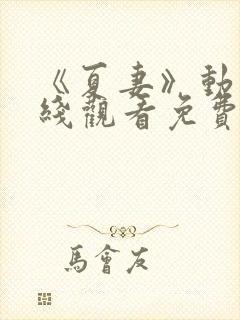 《夏妻》動
綫觀看免費
馬會友